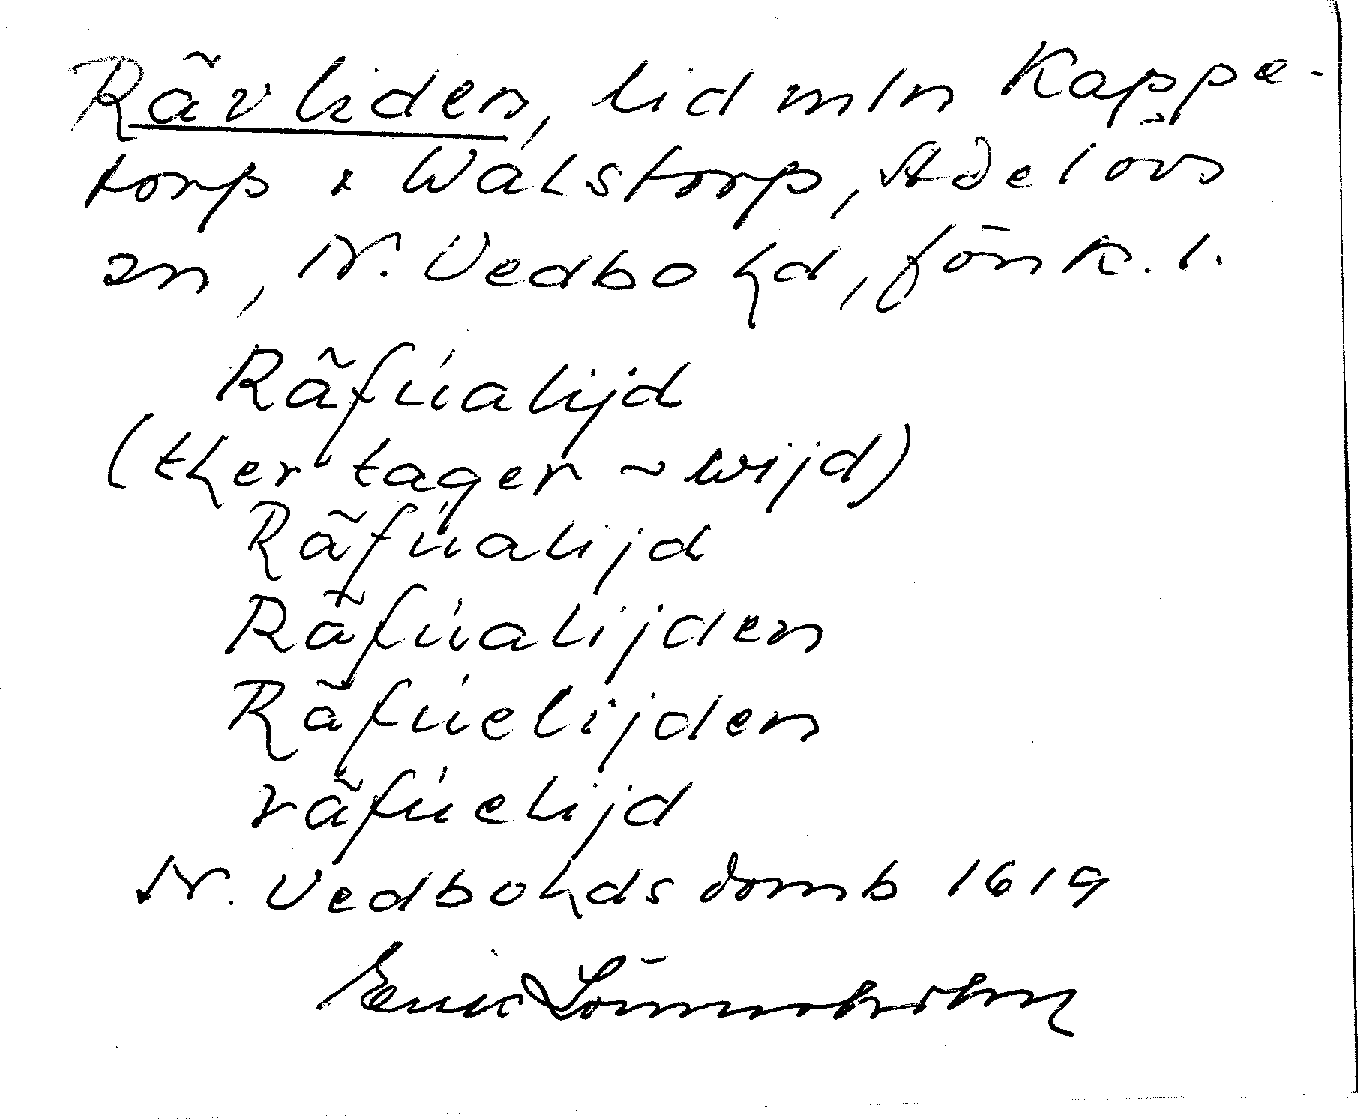 Rävliden, lid mln Kappe-
torp x Walstorp, Adelövs
sn, N. Vedbo hd, Jönk. l.
Räfúalijd
(ther tager ~ wijd)
Räfúalijd
Räfúalijden
Räfúelijden
räfúelijd
N. Vedbo hds domb 1619
Erik